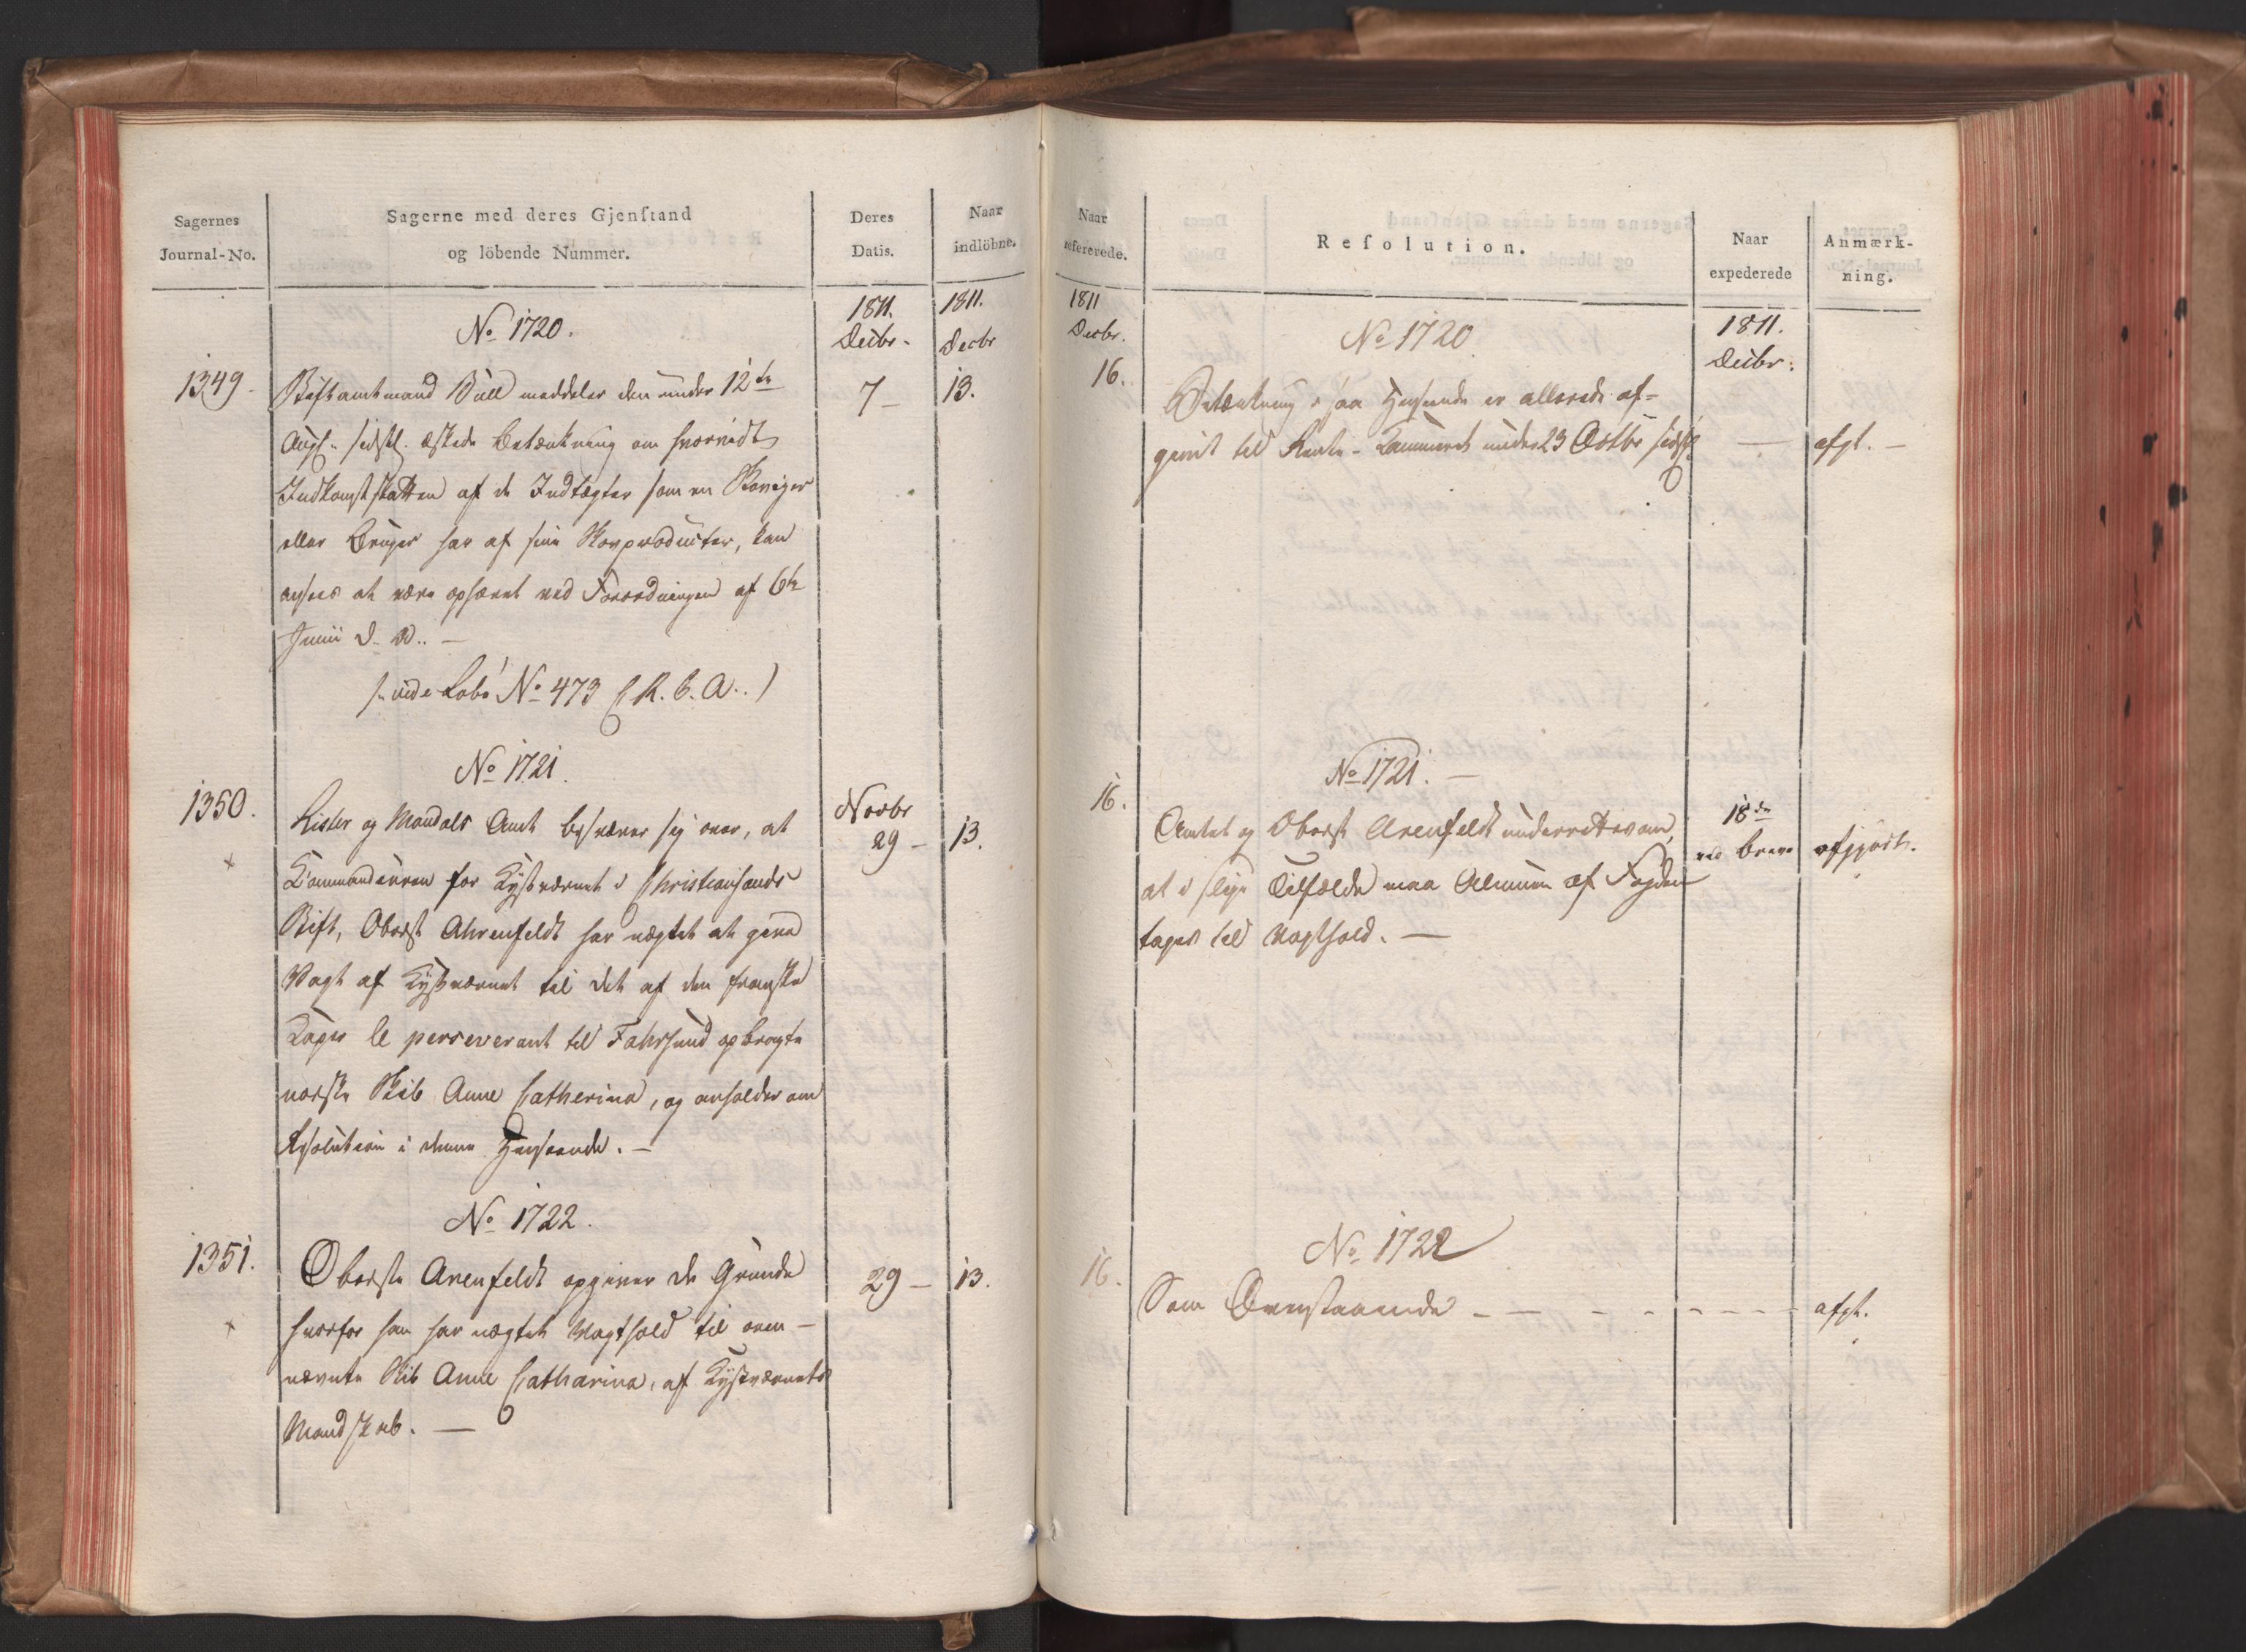 Sagernes
Journal-No.
Sagerne med deres Gjenſtand
og löbende Nummer.
Deres
Datis.
Naar
indlöbne.
1811.
Decbr.
1811.
Decbr
No 1720.
1349.
Stiftamtmand Bull meddeler den under 12te
7 –
13.
Augs. sidstl. æskede Betænkning om hvorvidt
Indkomstskatten af de Indtægter som en Skoveier
eller Bruger har af sine Skovproducter, kan
ansees at være ophævet ved Forordningen af 6te
Junii d. A. –
(: vide Lob. No 473 (R. C. A. .)
No 1721.
1350.
Lister og Mandals Amt besværer sig over, at
Novbr
29 –
13.
Commandeuren for Kystværnet i Christiansands
Stift, Oberst Ahrenfeldt har nægtet at give
Vagt af Kystværnet til det af den franske
Kaper le perseverant til Fahrsund opbragte
norske Skib Anne Catherina, og anholder om
Resolution i denne Henseende. –
No 1722.
1351.
Oberste Arenfeldt opgiver de Grunde
29 –
13.
hvorfor han har nægtet Vagthold til oven-
nævnte Skib Anne Catharina, af Kystværnets
Mandskab. –
Naar
refererede.
Reſolution.
Naar
expederede
Anmærk-
ning.
1811
Decbr.
1811.
Decbr.
No 1720.
16.
Betænkning i saa Henseende er allerede af-
givet til Rente-Kammeret under 23 Octbr sidstl.
–
afgl. –
No 1721. –
16.
Amtet og Oberst Arenfeldt underrettes om,
18de
ved Breve
afgjort.
at i slige Tilfælde maa Almuen af Fogden
tages til Vagthold. –
No 1722
16.
Som Ovenstaaende – – – – – – –
afgl.